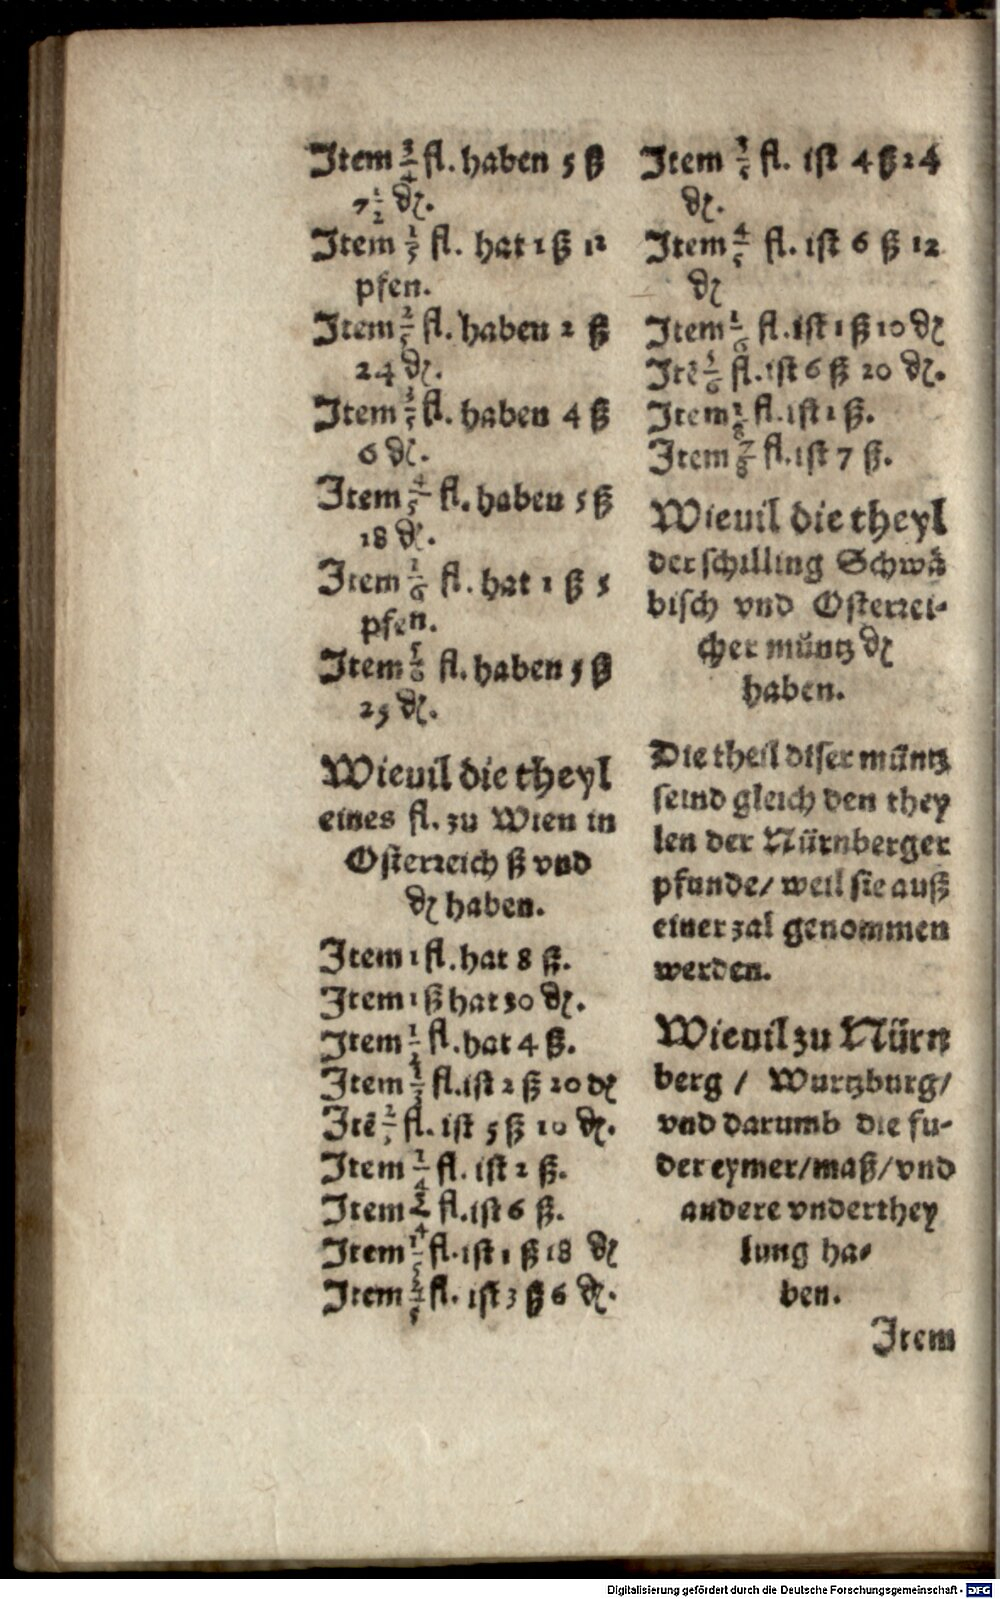 Item 3/4 fl. haben 5 ß
7 1/2 ₰.
Item 1/5 fl. hat 1 ß 12
pfen.
Item 2/5 fl. haben 2 ß
24 ₰.
Item 3/5 fl. haben 4 ß
6 ₰.
Item 4/5 fl. haben 5 ß
18 ₰.
Item 1/6 fl. hat 1 ß 5
pfen.
Item 5/6 fl. haben 5 ß
25 ₰.
Wieuil die theyl
eines fl. zu Wien in
Osterreich ß vnd
₰ haben.
Item 1 fl. hat 8 ß.
Item 1 ß hat 30 ₰.
Item 1/2 fl. hat 4 ß.
Item 1/3 fl. ist 2 ß 20 ₰
Itē 2/3 fl. ist 5 ß 10 ₰.
Item 1/4 fl. ist 2 ß.
Item 3/4 fl. ist 6 ß.
Item 1/5 fl. ist 1 ß 18 ₰
Item 2/5 fl. ist 3 ß 6 ₰.
Item 3/5 fl. ist 4 ß 24
₰.
Item 4/5 fl. ist 6 ß 12
₰
Item 1/6 fl. ist 1 ß 10 ₰
Itē 5/6 fl. ist 6 ß 20 ₰.
Item 1/8 fl. ist 1 ß.
Item 7/8 fl. ist 7 ß.
Wieuil die theyl
der schilling Schwä
bisch vnd Osterrei-
cher müntz ₰
haben.
Die theil diser müntz
seind gleich den they
len der Nürnberger
pfunde/ weil sie auß
einer zal genommen
werden.
Wieuil zu Nürn
berg / Wurtzburg/
vnd darumb die fu-
der eymer/maß/vnd
andere vnderthey
lung ha-
ben.
Item
Digitalisierung gefördert durch die Deutsche Forschungsgemeinschaft - DFG